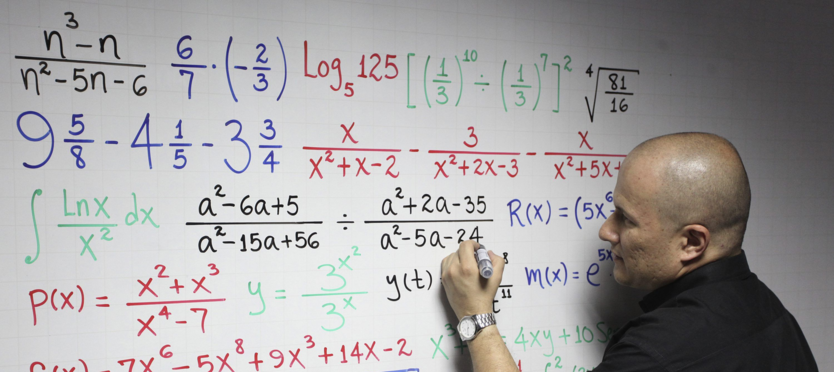 n³-n / n²-5n-6   6/7 · (-2/3)   Log₅125   [(1/3)¹⁰ ÷ (1/3)⁷]²   ⁴√(81/16)
9 5/8 - 4 1/5 - 3 3/4   x / x²+x-2 - 3 / x²+2x-3 - x / x²+5x+
∫ Lnx/x² dx   a²-6a+5 / a²-15a+56 ÷ a²+2a-35 / a²-5a-24   R(x) = (5x⁶
P(x) = x²+x³ / x⁴-7   y = 3^x² / 3^x   y(t)   8 / t¹¹   m(x) = e^5x
7x⁶ - 5x⁸ + 9x³ + 14x - 2   x³   = 4xy + 10